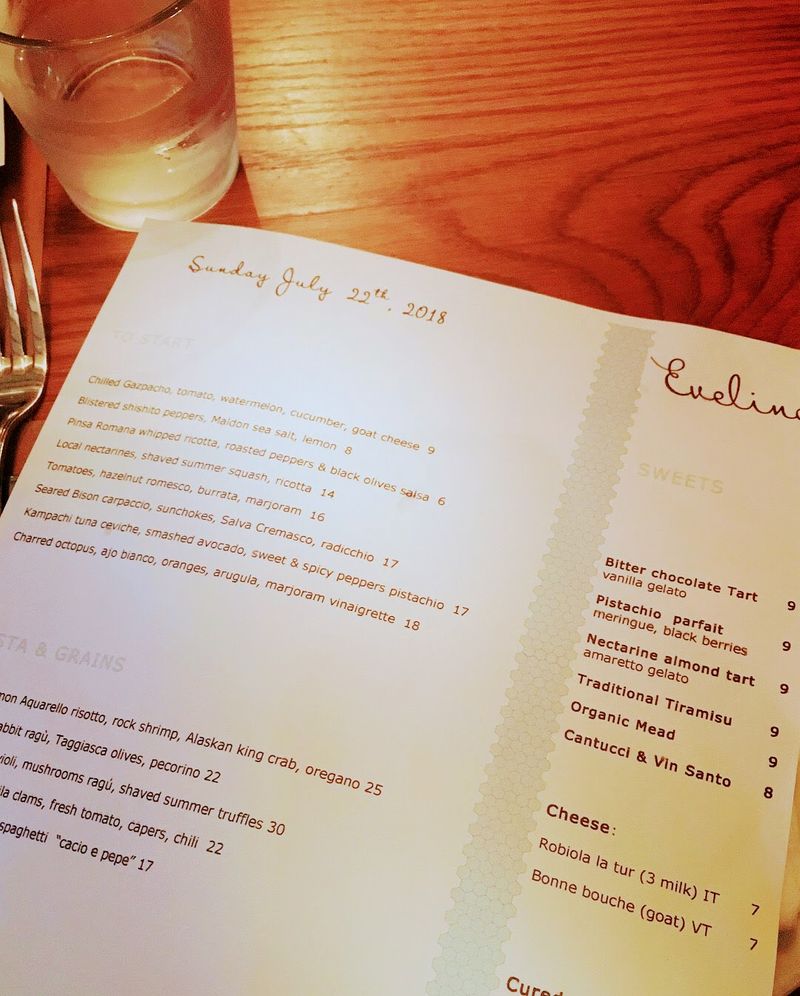 Sunday July 22th, 2018
TO START
Chilled Gazpacho, tomato, watermelon, cucumber, goat cheese 9
Blistered shishito peppers, Maldon sea salt, lemon 8
Pinsa Romana whipped ricotta, roasted peppers & black olives salsa 6
Local nectarines, shaved summer squash, ricotta 14
Tomatoes, hazelnut romesco, burrata, marjoram 16
Seared Bison carpaccio, sunchokes, Salva Cremasco, radicchio 17
Kampachi tuna ceviche, smashed avocado, sweet & spicy peppers pistachio 17
Charred octopus, ajo bianco, oranges, arugula, marjoram vinaigrette 18
& GRAINS
Aquarello risotto, rock shrimp, Alaskan king crab, oregano 25
ragù, Taggiasca olives, pecorino 22
mushrooms ragú, shaved summer truffles 30
clams, fresh tomato, capers, chili 22
spaghetti "cacio e pepe" 17
SWEETS
Bitter chocolate Tart 9
vanilla gelato
Pistachio parfait 9
meringue, black berries
Nectarine almond tart 9
amaretto gelato
Traditional Tiramisu 9
Organic Mead 9
Cantucci & Vin Santo 8
Cheese:
Robiola la tur (3 milk) IT 7
Bonne bouche (goat) VT 7